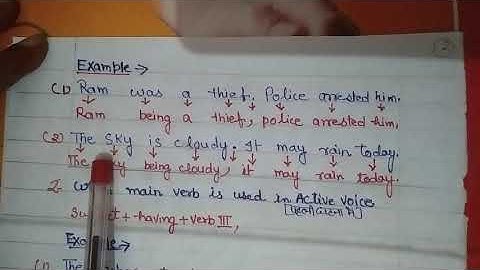 Example →
(1) Ram was a thief. Police arrested him.
Ram being a thief, police arrested him.
(2) The Sky is cloudy. It may rain today.
The Sky being cloudy, it may rain today.
I- main verb is used in Active voice
+ having + verb III,
Example →
(1) The